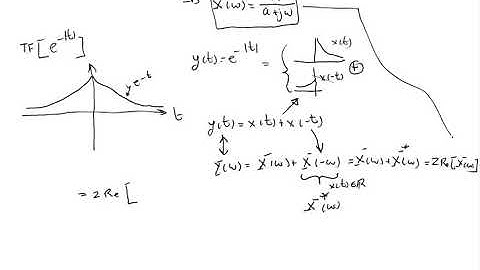 X̄(ω) = 1/(a+jω)
TF[e^{-|t|}]
e^{-t}
t
y(t) = e^{-|t|} = { x(t)
x(-t) +
y(t) = x(t) + x(-t)
Ȳ(ω) = X̄(ω) + X̄(-ω) = X̄(ω) + X̄*(ω) = 2Re[X̄(ω)]
x(t)∈ℝ
X̄*(ω)
= 2Re[